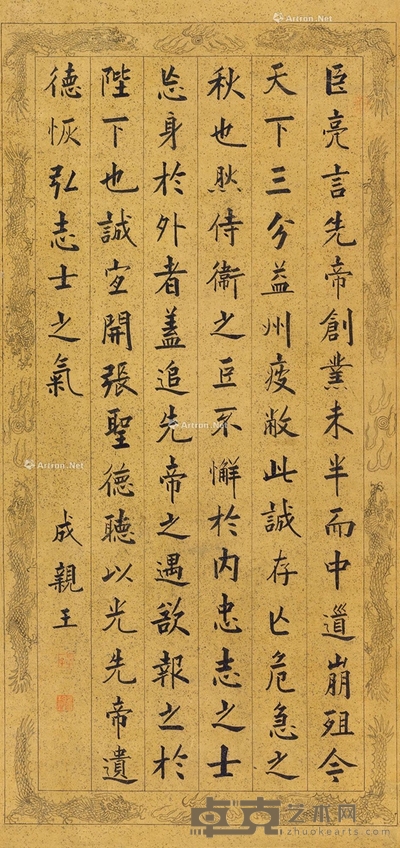 臣亮言先帝創業未半而中道崩殂今
天下三分益州疲敝此誠存亡危急之
秋也然侍衛之臣不懈於内忠志之士
忘身於外者蓋追先帝之遇欲報之於
陛下也誠宜開張聖德聽以光先帝遺
德恢弘志士之氣
成親王
Artron.Net
Artron.Net
Artron.Net
Artron.Net
卓克艺术网
zhuokearts.com